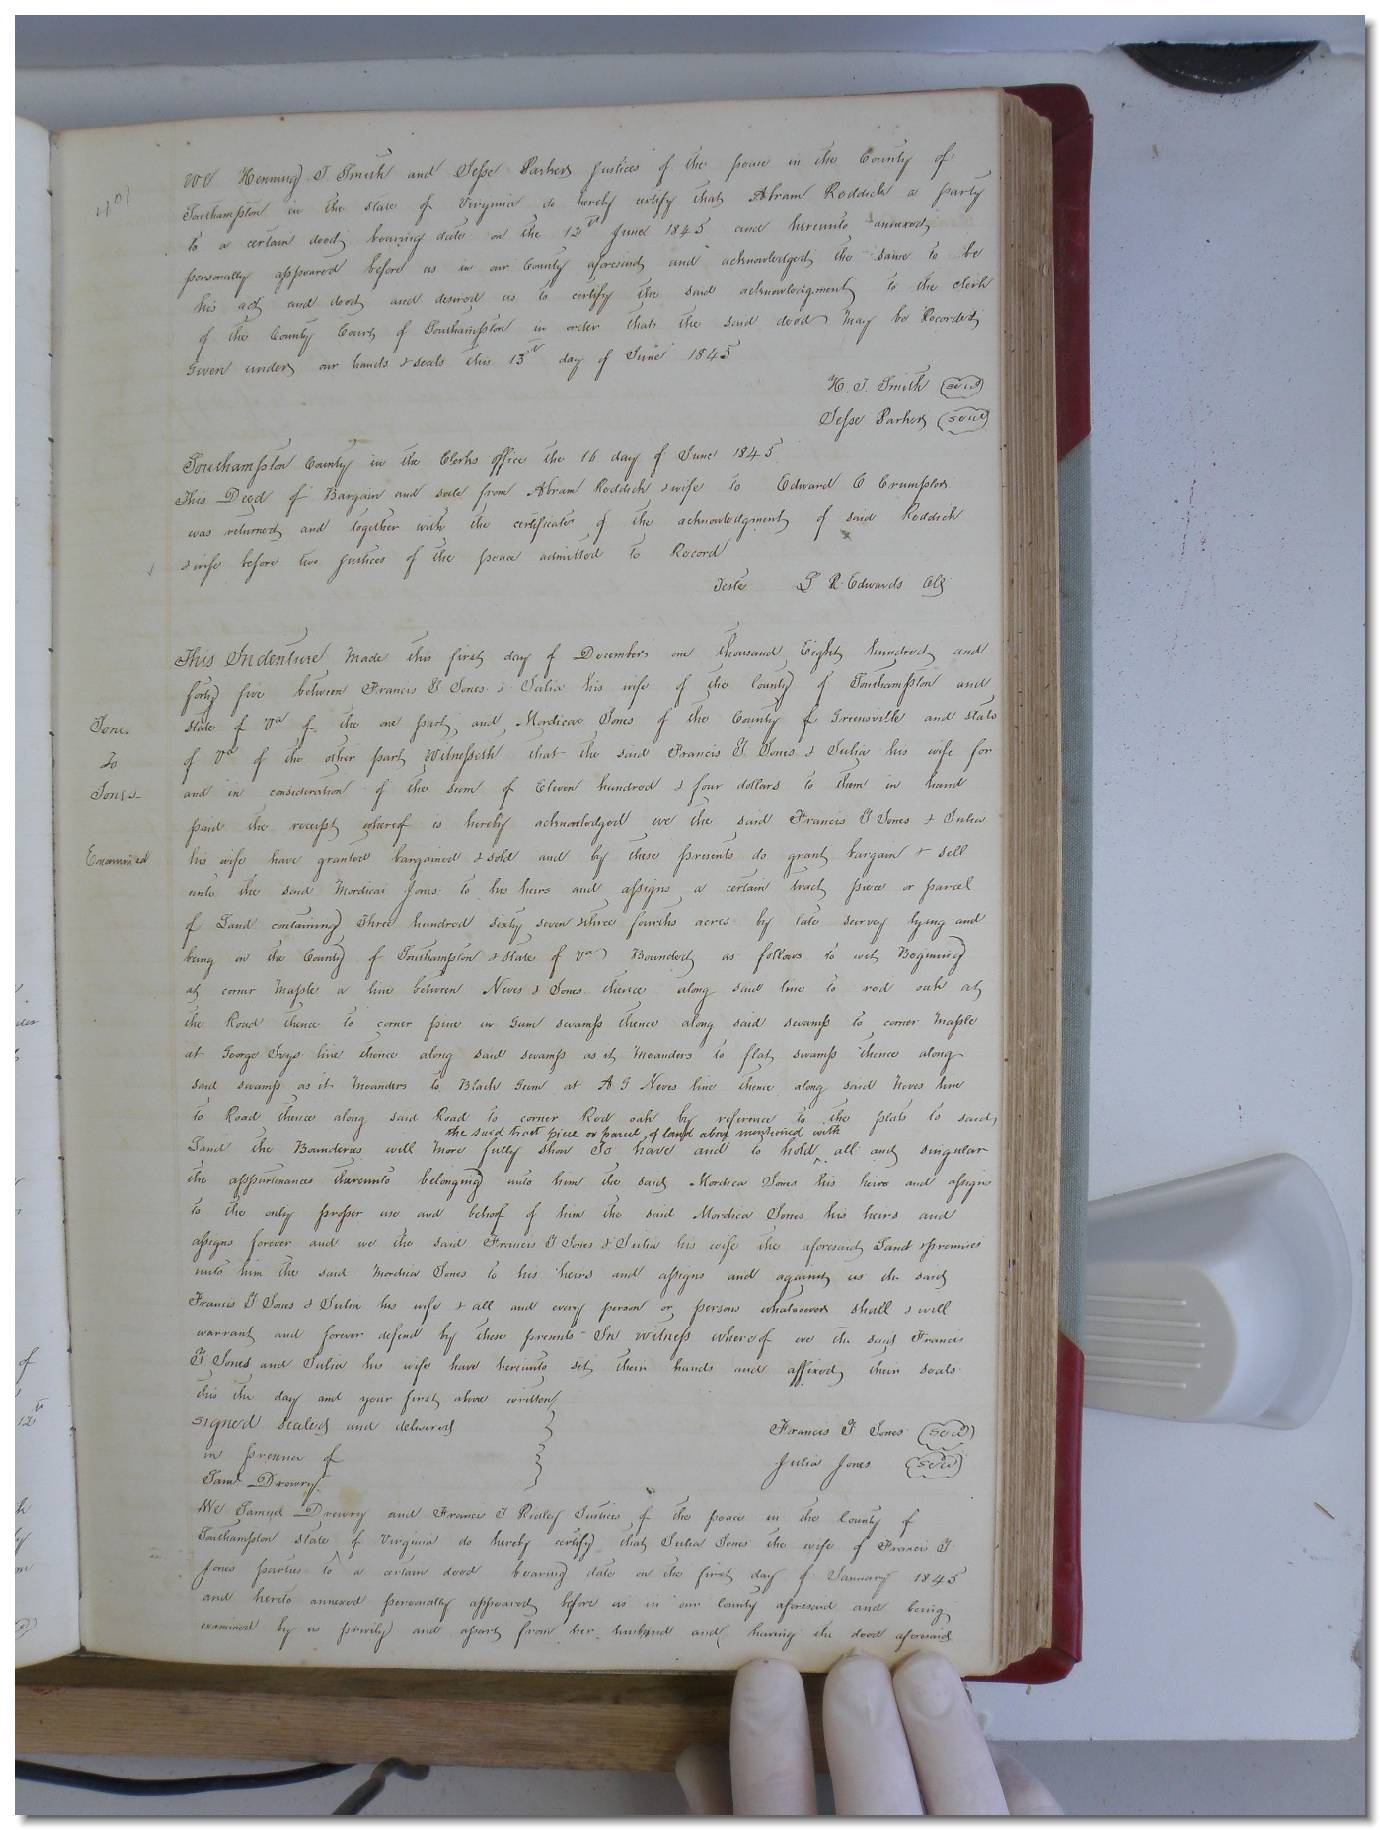 We Henning T Smith and Jesse Parker Justices of the peace in the County of
Southampton in the state of Virginia do hereby certify that Abram Roddick a party
to a certain deed bearing date on the 12th June 1845 and hereunto annexed
personally appeared before us in our County aforesaid and acknowledged the same to be
his act and deed and desired us to certify the said acknowledgment to the clerk
of the County Court of Southampton in order that the said deed may be Recorded
Given under our hands & seals this 13th day of June 1845
H. T. Smith (seal)
Jesse Parker (seal)
Southampton County in the Clerks office the 16 day of June 1845
This Deed of Bargain and sale from Abram Roddick & wife to Edward C Crumpler
was returned and together with the certificate of the acknowledgment of said Roddick
& wife before two Justices of the peace admitted to Record
Teste L R Edwards Clk
Jones
To
Jones
Examined
This Indenture Made this first day of December one thousand Eight hundred and
forty five between Francis T Jones & Julia his wife of the County of Southampton and
state of Va of the one part and Mordica Jones of the County of Greensville and state
of Va of the other part Witnesseth that the said Francis T Jones & Julia his wife for
and in consideration of the sum of Eleven hundred & four dollars to them in hand
paid the receipt whereof is hereby acknowledged we the said Francis T Jones & Julia
his wife have granted bargained & sold and by these presents do grant bargain & sell
unto the said Mordicai Jones to his heirs and assigns a certain tract piece or parcel
of Land containing Three hundred sixty seven & three fourths acres by late survey lying and
being in the County of Southampton & state of Va Bounded as follows to wit Beginning
at corner Maple a line between Neves & Jones thence along said line to red oak at
the Road thence to corner pine in Gum swamp thence along said swamp to corner Maple
at George Ivys line thence along said swamp as it Meanders to flat swamp thence along
said swamp as it Meanders to Black Gum at A G Neves line thence along said Neves line
to Road thence along said Road to corner Red oak by reference to the plats to said
the said tract piece or parcel of land above mentioned with
Land the Bounderies will More fully show To have and to hold all and singular
the appurtenances thereunto belonging unto him the said Mordica Jones his heirs and assigns
to the only proper use and behoof of him the said Mordica Jones his heirs and
assigns forever and we the said Francis T Jones & Julia his wife the aforesaid Land & premises
unto him the said Mordica Jones to his heirs and assigns and against us the said
Francis T Jones & Julia his wife & all and every person or persons whatsoever shall & will
warrant and forever defend by these presents In witness whereof we the said Francis
T Jones and Julia his wife have hereunto set their hands and affixed their seals
this the day and year first above written
signed sealed and delivered
in presence of
Saml Drewry
Francis T Jones (seal)
Julia Jones (seal)
We Samuel Drewry and Francis T Ridley Justices of the peace in the County of
Southampton state of Virginia do hereby certify that Julia Jones the wife of Francis T
Jones parties to a certain deed bearing date on the first day of January 1845
and hereto annexed personally appeared before us in our County aforesaid and being
examined by us privily and apart from her husband and having the deed aforesaid